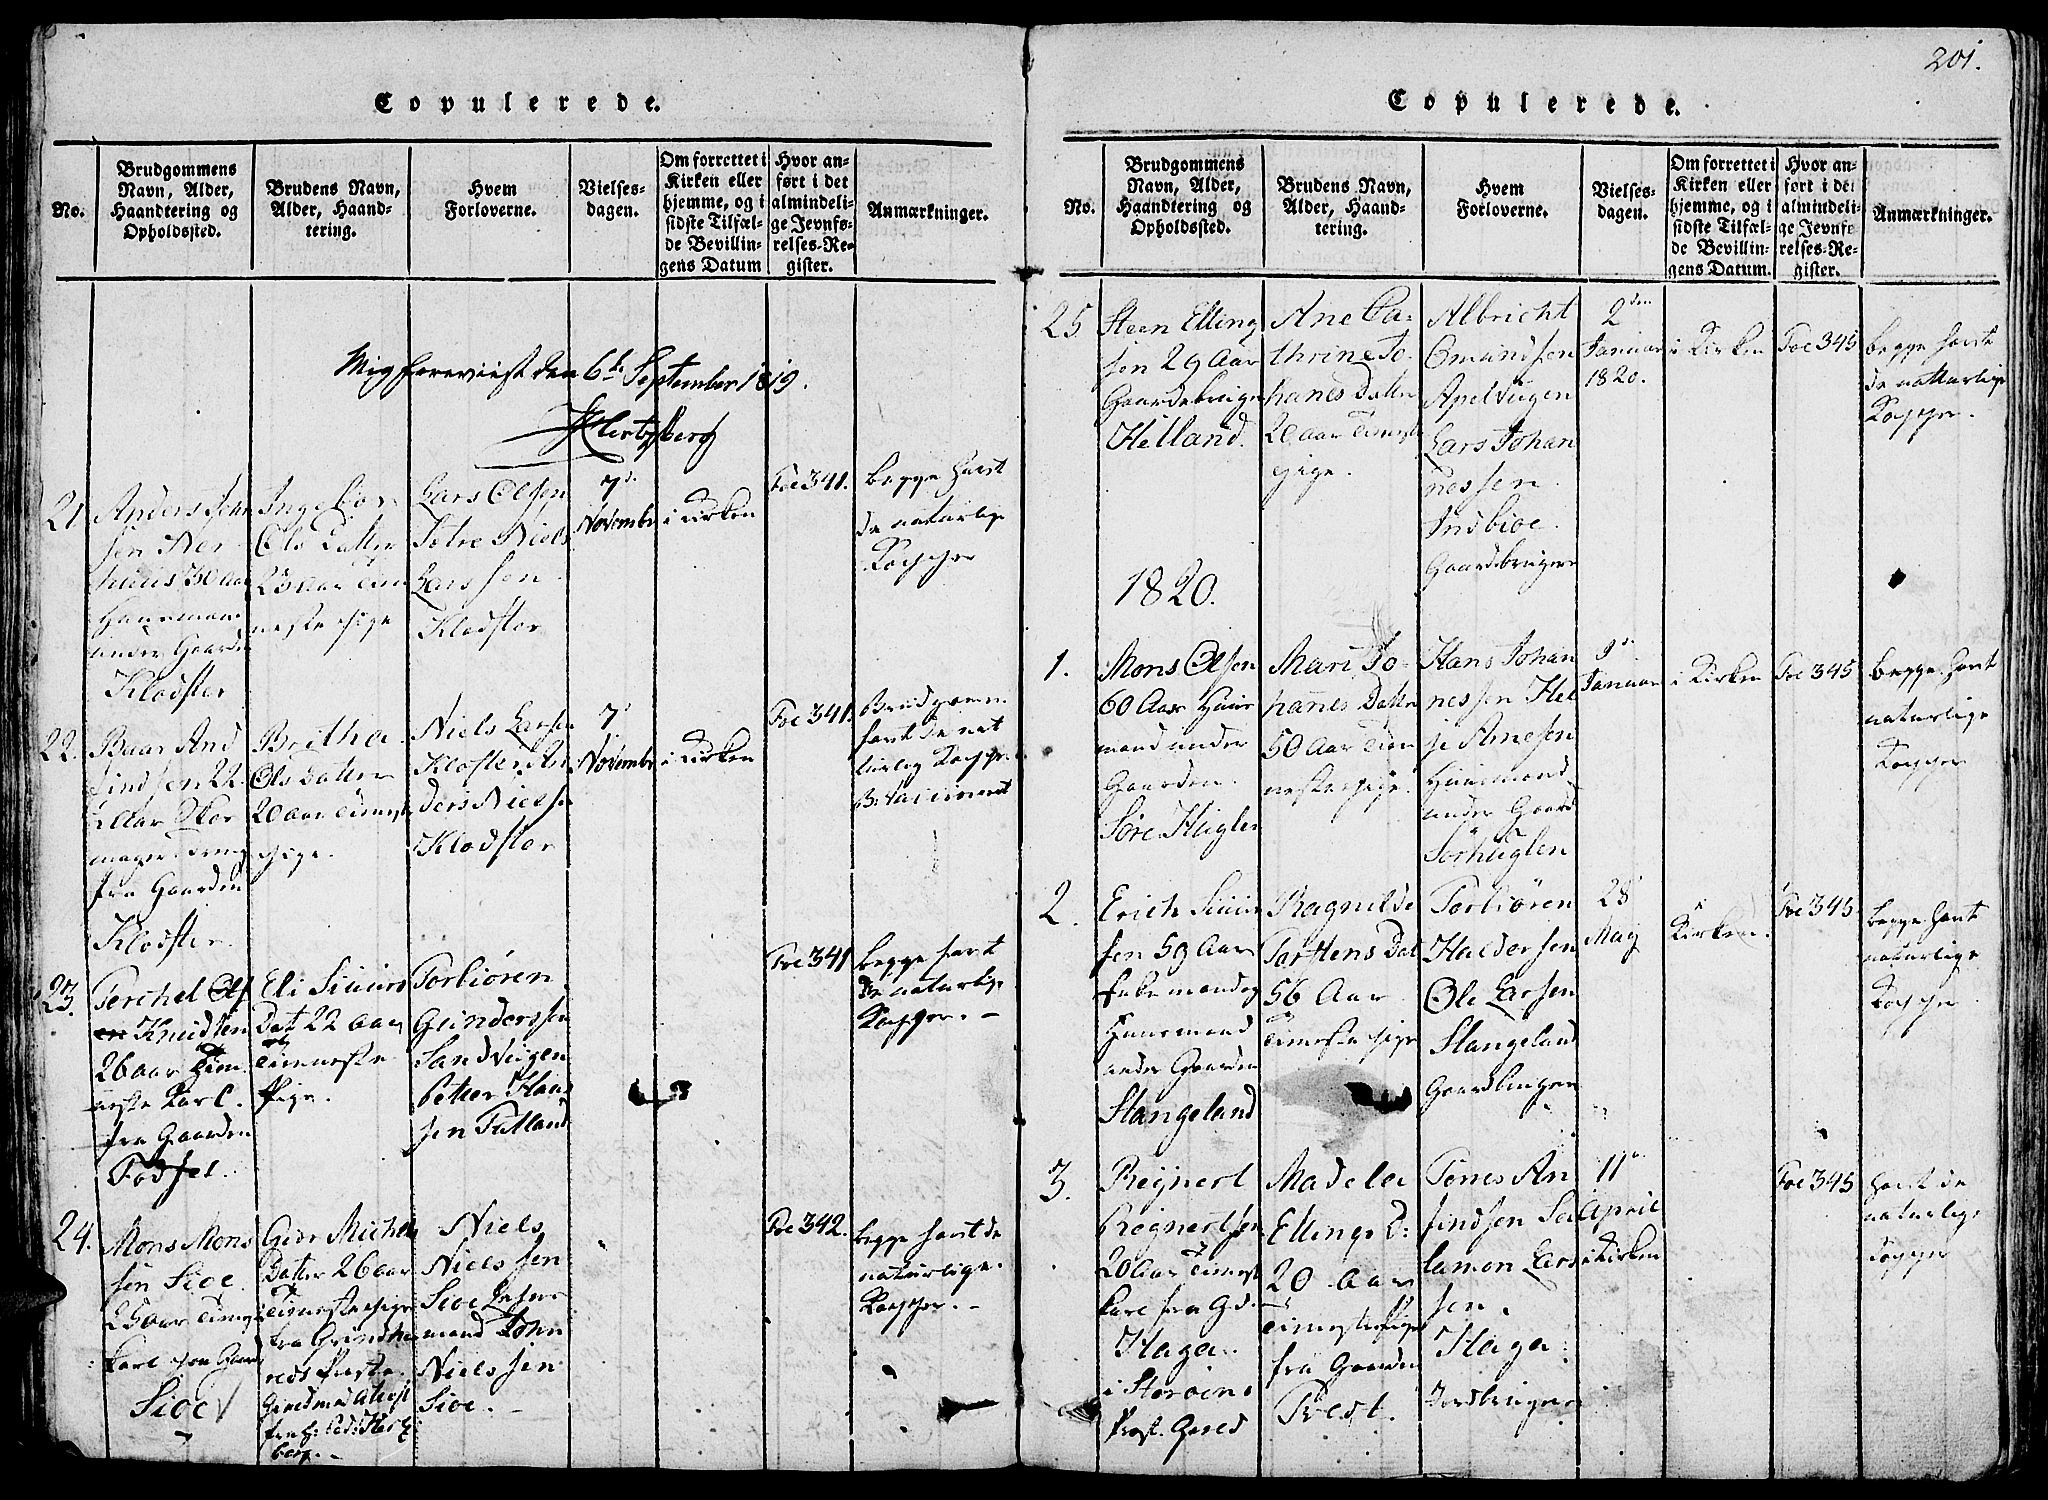 201.
Copulerede.
No.
Brudgommens
Navn, Alder,
Haandtering og
Opholdssted.
Brudens Navn,
Alder, Haand-
tering.
Hvem
Forloverne.
Vielses-
dagen.
Om forrettet i
Kirken eller
hjemme, og i
sidste Tilfæl-
de Bevillin-
gens Datum
Hvor an-
ført i det
almindeli-
ge Jevnfø-
relses-Re-
gister.
Anmærkninger.
Mig foreviist den 6te September 1819.
Hertzberg
21
Anders John
sen Ner
huus 30 Aar
Huusmand
under Gaarden
Klodster
Ingebor
Ols Datter
23 aar Tien
neste Pige
Lars Olsen
Totre Niels
Larssen
Klodster
7d.
Novembr
i Kirken
Foe 341.
begge havt
de naturlige
Kopper
22.
Baar And
findsen 22
Aar Skoe
mager
fra Gaarden
Klodster.
Britha
Ols Datter
20 aar Tieneste
Pige.
Niels Larsen
Kloster An
ders Niesse
Klodster
7d
Novembr
i Kirken
Foe 341.
Brudgomm
havt de nat
urlig Kopper
B: Vaccineret
23.
Terchel Ols
Knudsen
26 aar Tien
neste Karl.
fra Gaarden
Fodsel.
Eli Siurs
Dat 22 Aar
Tienneste
Pige.
Torbiøren
Gunderssen
Sandviigen
Petter Haas
sen Tutland
Foe 341
begge havt
de naturlige
Kopper. -
24.
Mons Mons
sen Sioe
25 aar Tienest
Karl fra Gaard
Sioe
Giør Michels
Datter 26 aar
Tienneste Pige
fra
Niels
Nielssen
Sioe
mand John
Nielssen
Sioe. -
Foe 342.
begge havt de
naturlige
Kopper. -
Copulerede.
No.
Brudgommens
Navn, Alder,
Haandtering og
Opholdssted.
Brudens Navn,
Alder, Haand-
tering.
Hvem
Forloverne.
Vielses-
dagen.
Om forrettet i
Kirken eller
hjemme, og i
sidste Tilfæl-
de Bevillin-
gens Datum.
Hvor an-
ført i det
almindeli-
ge Jevnfø-
relses-Re-
gister.
Anmærkninger.
25
Steen Elling
sen 29 Aar
Gaardebruger
Helland.
Ane Ca-
thrine Jo-
hanes Datter
20 aar Tieneste
Pige.
Albricht
Omundsen
Apelviigen
Lars Johan
nessen
Indbioe
Gaardebrugere
2den
Januar
1820.
i Kirken
Foe 345
begge havt
de natturlige
Kopper.
1820.
1.
Mons Olsen
60 Aar Huus
mand under
Gaarden
Søre Huglen
Mari Jo-
hannes Datter
50 Aar Tien
neste Pige.
Hans Johan
nessen Hel
je Arnesen
Huusmand
under Gaard
Sørhuglen
9d
Januar
i Kirken
Foe 345
begge havt
naturlige
Kopper
2.
Erich Siurs
sen 59 Aar
Enkemand og
Huusmand
under Gaarden
Stangeland
Ragnilde
Torstens Dat
56 Aar
Tieneste Pige
Torbiøren
Haldorsen
Ole Larsen
Stangeland
Gaardbrugere
28
May
i
Kirken.
Foe 345
begge havt
naturlige
Kopper
3.
Reynert
Regnertsen
20 Aar Tienest
Karl fra Gd.
Haga
i Storøens
Præst. Gield
Madele
Ellings D:
20 Aar
Tieneste Pige
fra Gaarden
Tveit.
Tones An
findsen Sa
lamon Lars
sen.
Haga
Jordbruger
11te
April
i Kirken
Foe 345
havt de
naturlige
Kopper